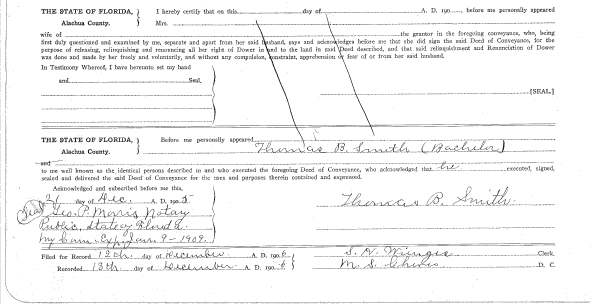 THE STATE OF FLORIDA, } I hereby certify that on this day of A. D. 190 , before me personally appeared
Alachua County. } Mrs.
wife of the grantor in the foregoing conveyance, who, being
first duly questioned and examined by me, separate and apart from her said husband, says and acknowledges before me that she did sign the said Deed of Conveyance, for the
purpose of releasing, relinquishing and renouncing all her right of Dower in and to the land in said Deed described, and that said relinquishment and Renunciation of Dower
was done and made by her freely and voluntarily, and without any compulsion, constraint, apprehension or fear of or from her said husband.
In Testimony Whereof, I have hereunto set my hand
and Seal,
[SEAL.]
THE STATE OF FLORIDA, } Before me personally appeared Thomas B. Smith (Bachelor)
Alachua County. }
and
to me well known as the identical persons described in and who executed the foregoing Deed of Conveyance, who acknowledged that he executed, signed,
sealed and delivered the said Deed of Conveyance for the uses and purposes therein contained and expressed.
Acknowledged and subscribed before me this,
21 day of Dec. A. D. 1905
Thomas B. Smith
Seal
Geo. P. Morris Notary
Public, State of Florida.
My Com. Exp. Jan. 9 - 1909.
Filed for Record 12th day of December A. D. 1906 S. H. Wienges Clerk.
Recorded 13th day of December A. D. 1906 M. S. D. C.